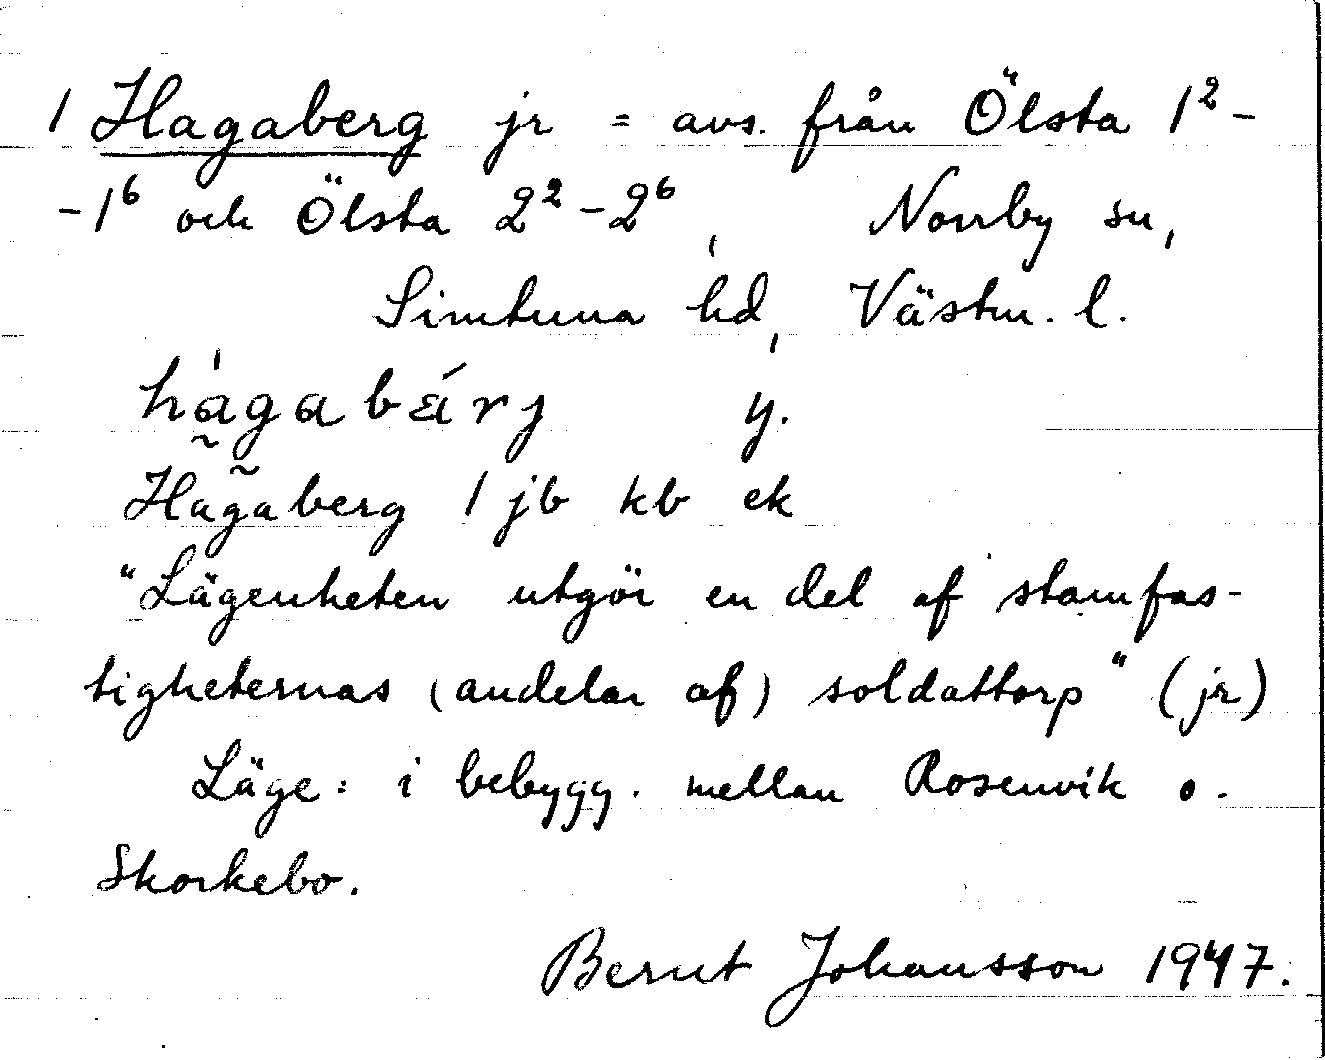 1 Hagaberg jr = avs. från Ölsta 1²-
-1⁶ och Ölsta 2²-2⁶, Norrby sn,
Simtuna hd, Västm. l.
hagabärj y.
Hagaberg 1 jb kb ek
"Lägenheten utgör en del af stamfas-
tigheternas (andelar af) soldattorp" (jr)
Läge: i bebygg. mellan Rosenvik o.
Skorkebo.
Bernt Johansson 1947.